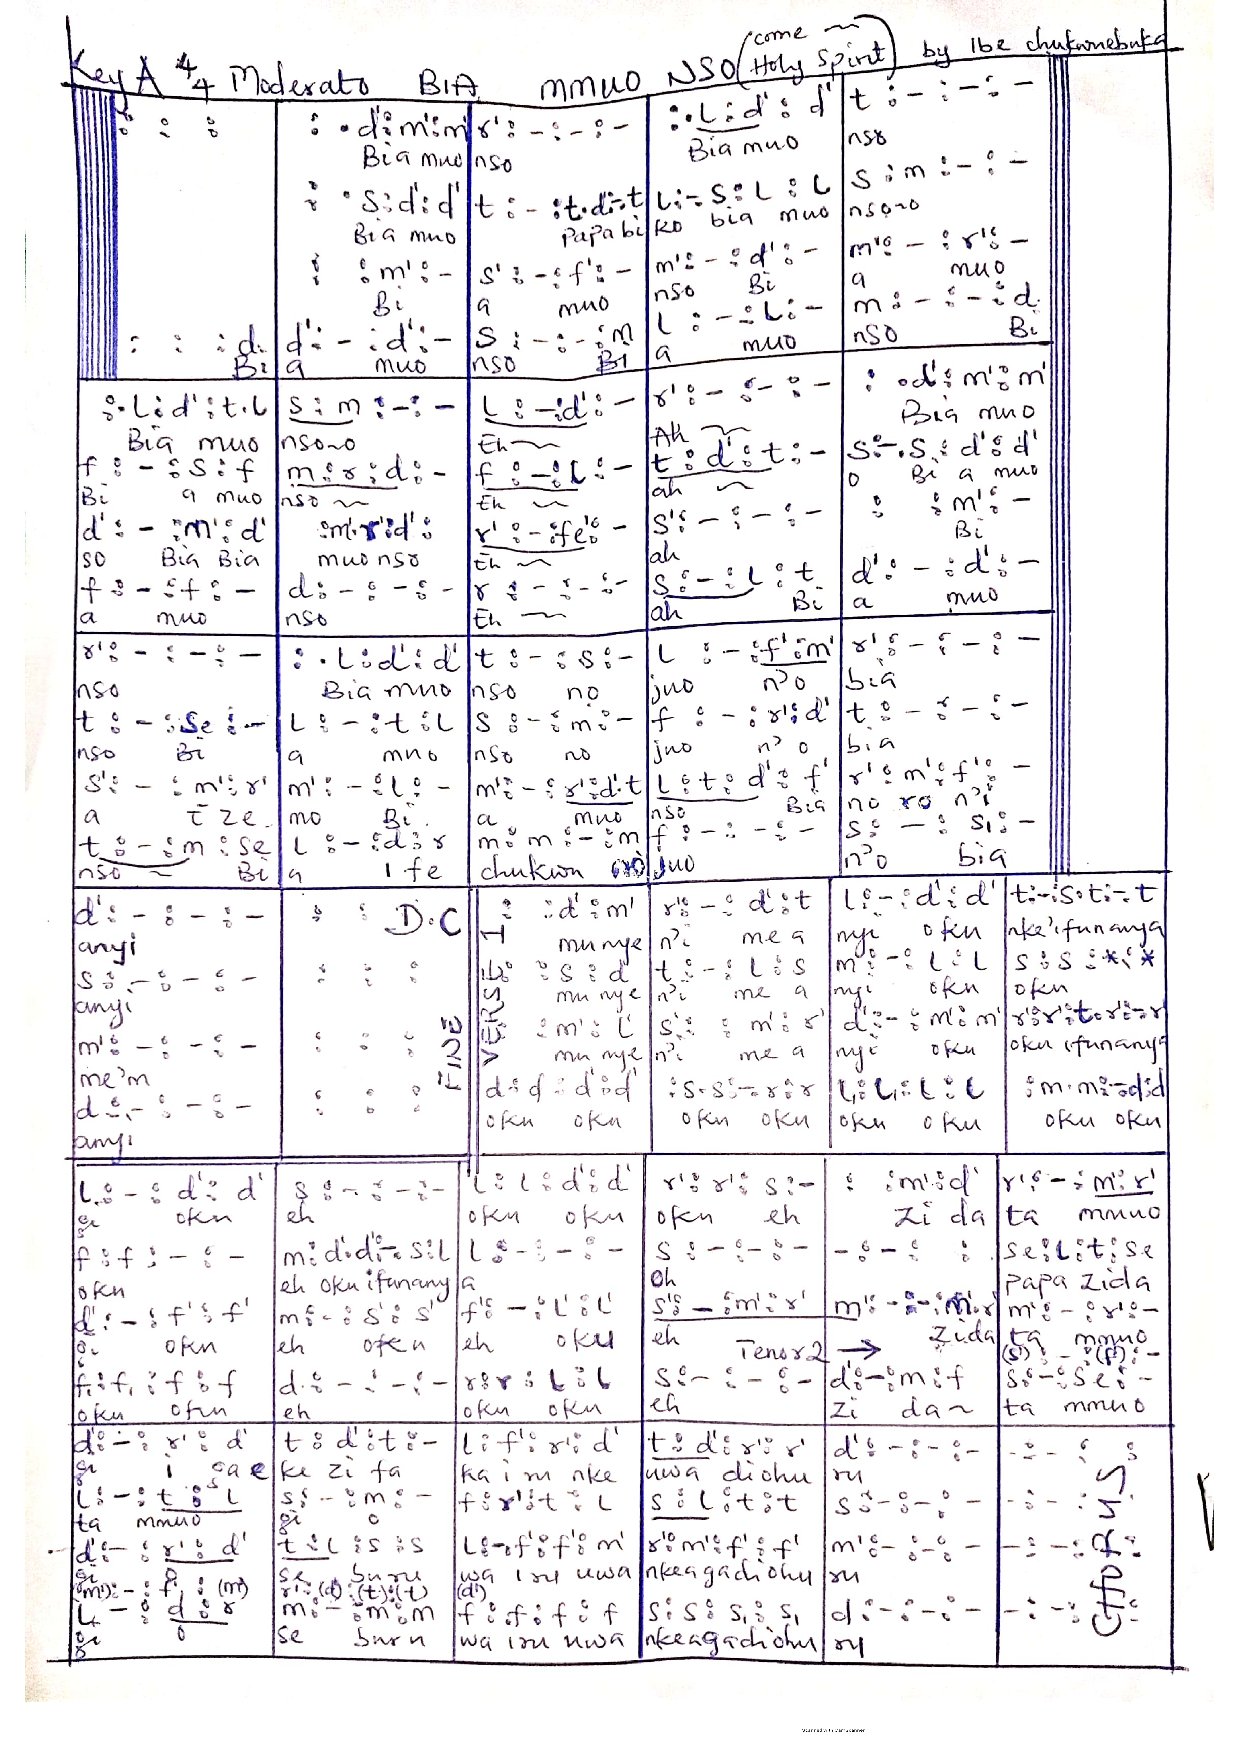 Key A 4/4 Moderato BIA MMUO NSO (come Holy Spirit) by Ibe chukwuebuka
: : : | : .d':m':m' | r':-:-:- | :.L:d':d' | t:-:-:-
Bia muo | nso | Bia muo | nso
: .s:d':d' | t:-:t.d':-t | L:-S:L:L | s:m:-:-
Bia muo | Papa bi | ko bia muo | nso~o
: :m':- | s':-:f':- | m':-:d':- | m':-:r':-
Bi | a muo | nso Bi | a muo
: : :d. | d':-:d':- | S:-:-:m | L:-:L:- | m:-:-:d.
Bi | a muo | nso Bi | a muo | nso Bi
:.L:d':t.L | s:m:-:- | L:-:d':- | r':-:-:- | : .d':m':m'
Bia muo | nso~o | Eh~ | Ah~ | Bia muo
f:-:s:f | m:r:d:- | f:-:L:- | t:d':t:- | s:-.s:d':d'
Bi a muo | nso~ | Eh~ | ah~ | o Bi a muo
d':-:m':d' | :m'.r':d': | r':-:fe':- | s':-:-:- | : :m':-
so Bia Bia | muo nso | Eh~ | ah | Bi
f:-:f:- | d:-:-:- | r:-:-:- | s:-:L:t | d':-:d':-
a muo | nso | Eh~ | ah Bi | a muo
r':-:-:- | :.L:d':d' | t:-:s:- | L:-:f':m' | r':-:-:-
nso | Bia muo | nso no | juo n'o | bia
t:-:se:- | L:-:t:L | s:-:m:- | f:-:r':d' | t:-:-:-
nso Bi | a muo | nso no | juo n'o | bia
s':-:m':r' | m':-:L:- | m':-:r':d'.t | L:t:d':f' | r':m':f':-
a I ze | mo Bi. | a muo | nso Bia | no ro n'i
t:-:m:se | L:-:d:r | m:m:-:m | f:-:-:- | s:-:s,:-
nso~ Bi | a I fe | chukwu | juo | n'o bia
d':-:-:- | : : D.C | VERSE 1 | : :d':m' | r':-:d':t | L:-:d':d' | t:-:s.t:-.t
anyi | mu nye | n'i me a | nyi oku | nke'ifunanya
s:-:-:- | : : : | : :s:d | t:-:L:s | m:-:L:L | s:s:*:*
anyi | mu nye | n'i me a | nyi oku | oku
m':-:-:- | : : : | FINE | :m':L | s':-:m':r' | d':-:m':m' | r':r':t.r':-r
me'm | mu nye | n'i me a | nyi oku | oku ifunanya
d:-:-:- | : : : | d:d:d':d' | :s.s:-:r:r | L,:L,:L:L | :m.m:-:d:d
anyi | oku oku | oku oku | oku oku | oku oku
L:-:d':d' | s:-:-:- | L:L:d':d' | r':r':s:- | : :m':d' | r':-:m':r'
gi oku | eh | oku oku | oku eh | zi da | ta mmuo
f:f:-:- | m:d.d:-.s:L | L:-:-:- | s:-:-:- | -:-: : | se:L:t:se
oku | eh oku ifunany | a | Oh | Papa zida
d':-:f':f' | m':-:s':s' | f':-:L':L' | s':-:m':r' | m':-:-:m'.r' | m':-:r':-
gi oku | eh oku | eh oku | eh | zida | ta mmuo
Tenor 2 → | (s'):-:(f'):-
f,:f,:f:f | d:-:-:- | r:r:L:L | s:-:-:- | d:-:m:f | s:-:se:-
oku oku | eh | oku oku | eh | zi da~ | ta mmuo
d':-:r':d' | t:d':t:- | L:f':r':d' | t:d':r':r' | d':-:-:- | -:-: :
gi i ga e | ke zi fa | ka i ru nke | uwa dichu | ru
L:-:t:L | s:-:m:- | f:r':t:L | s:L:t:t | s:-:-:- | -:-: :
ta mmuo | gi o
d':-:r':d' | t:L:s:s | L:-f':f':m' | r':m':f':f' | m':-:-:- | -:-:-:
gi | se buru | wa iru uwa | nkeagadichu | ru
(m'):-:f:(m') | r':(d'):(t):(t) | (d')
L:-:d:r | m:-:m:m | f:f:f:f | s:s:s,:s, | d:-:-:- | -:-: :
gi o | se buru | wa iru uwa | nkeagadichu | ru
CHORUS